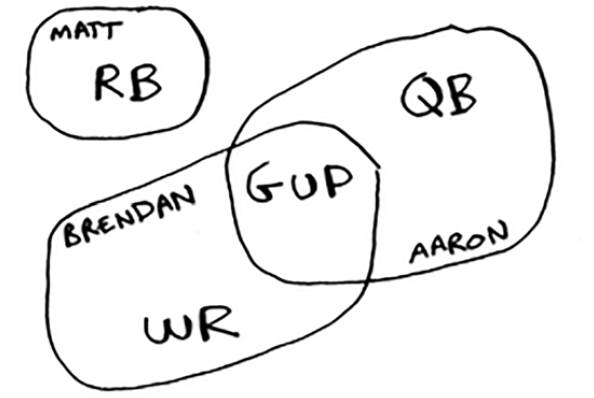 MATT
RB
QB
GUP
BRENDAN
AARON
WR